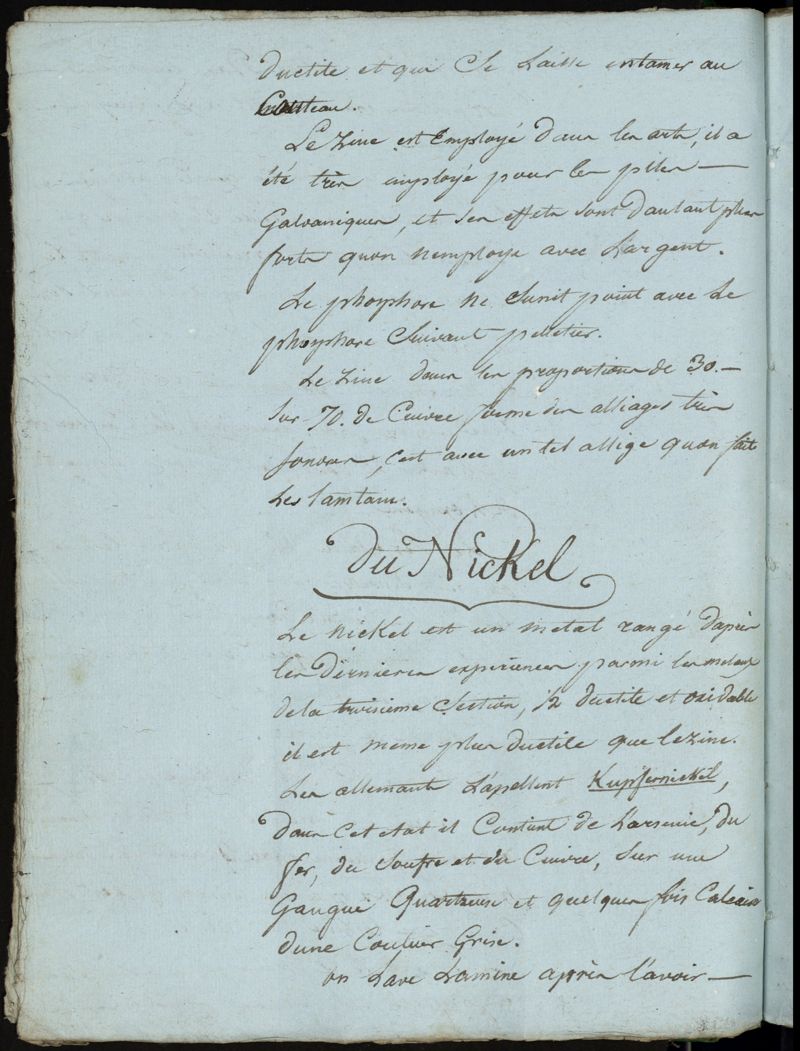 Ductile et qui Se Laisse entamer au
Couteau.
Le Zinc est Employé dans les arts, il a
été très employé pour les piles —
Galvaniques, et ses effets sont Dautant plus
forts quon nemploye avec Largent.
Le phosphore ne Sunit point avec Le
phosphore Suivant pelletier.
Le Zinc dans les proportions de 30. —
sur 70. de Cuivre forme des alliages très
sonores, c'est avec un tel alliage quon fait
Les tamtams.
Du Nickel
Le nickel est un metal rangé Daprès
les Dernieres experiences parmi les metaux
de la troisieme Section, ½ ductile et oxidable
il est meme plus ductile que le zinc.
Les allemants L'apellent Kupfernickel,
Dans Cet etat il Contient de L'arsenic, du
fer, du Soufre et du Cuivre, Sur une
Gangue Quartzeuse et quelques fois Calcaire
dune Couleur Grise.
on Lave Lamine après l'avoir —